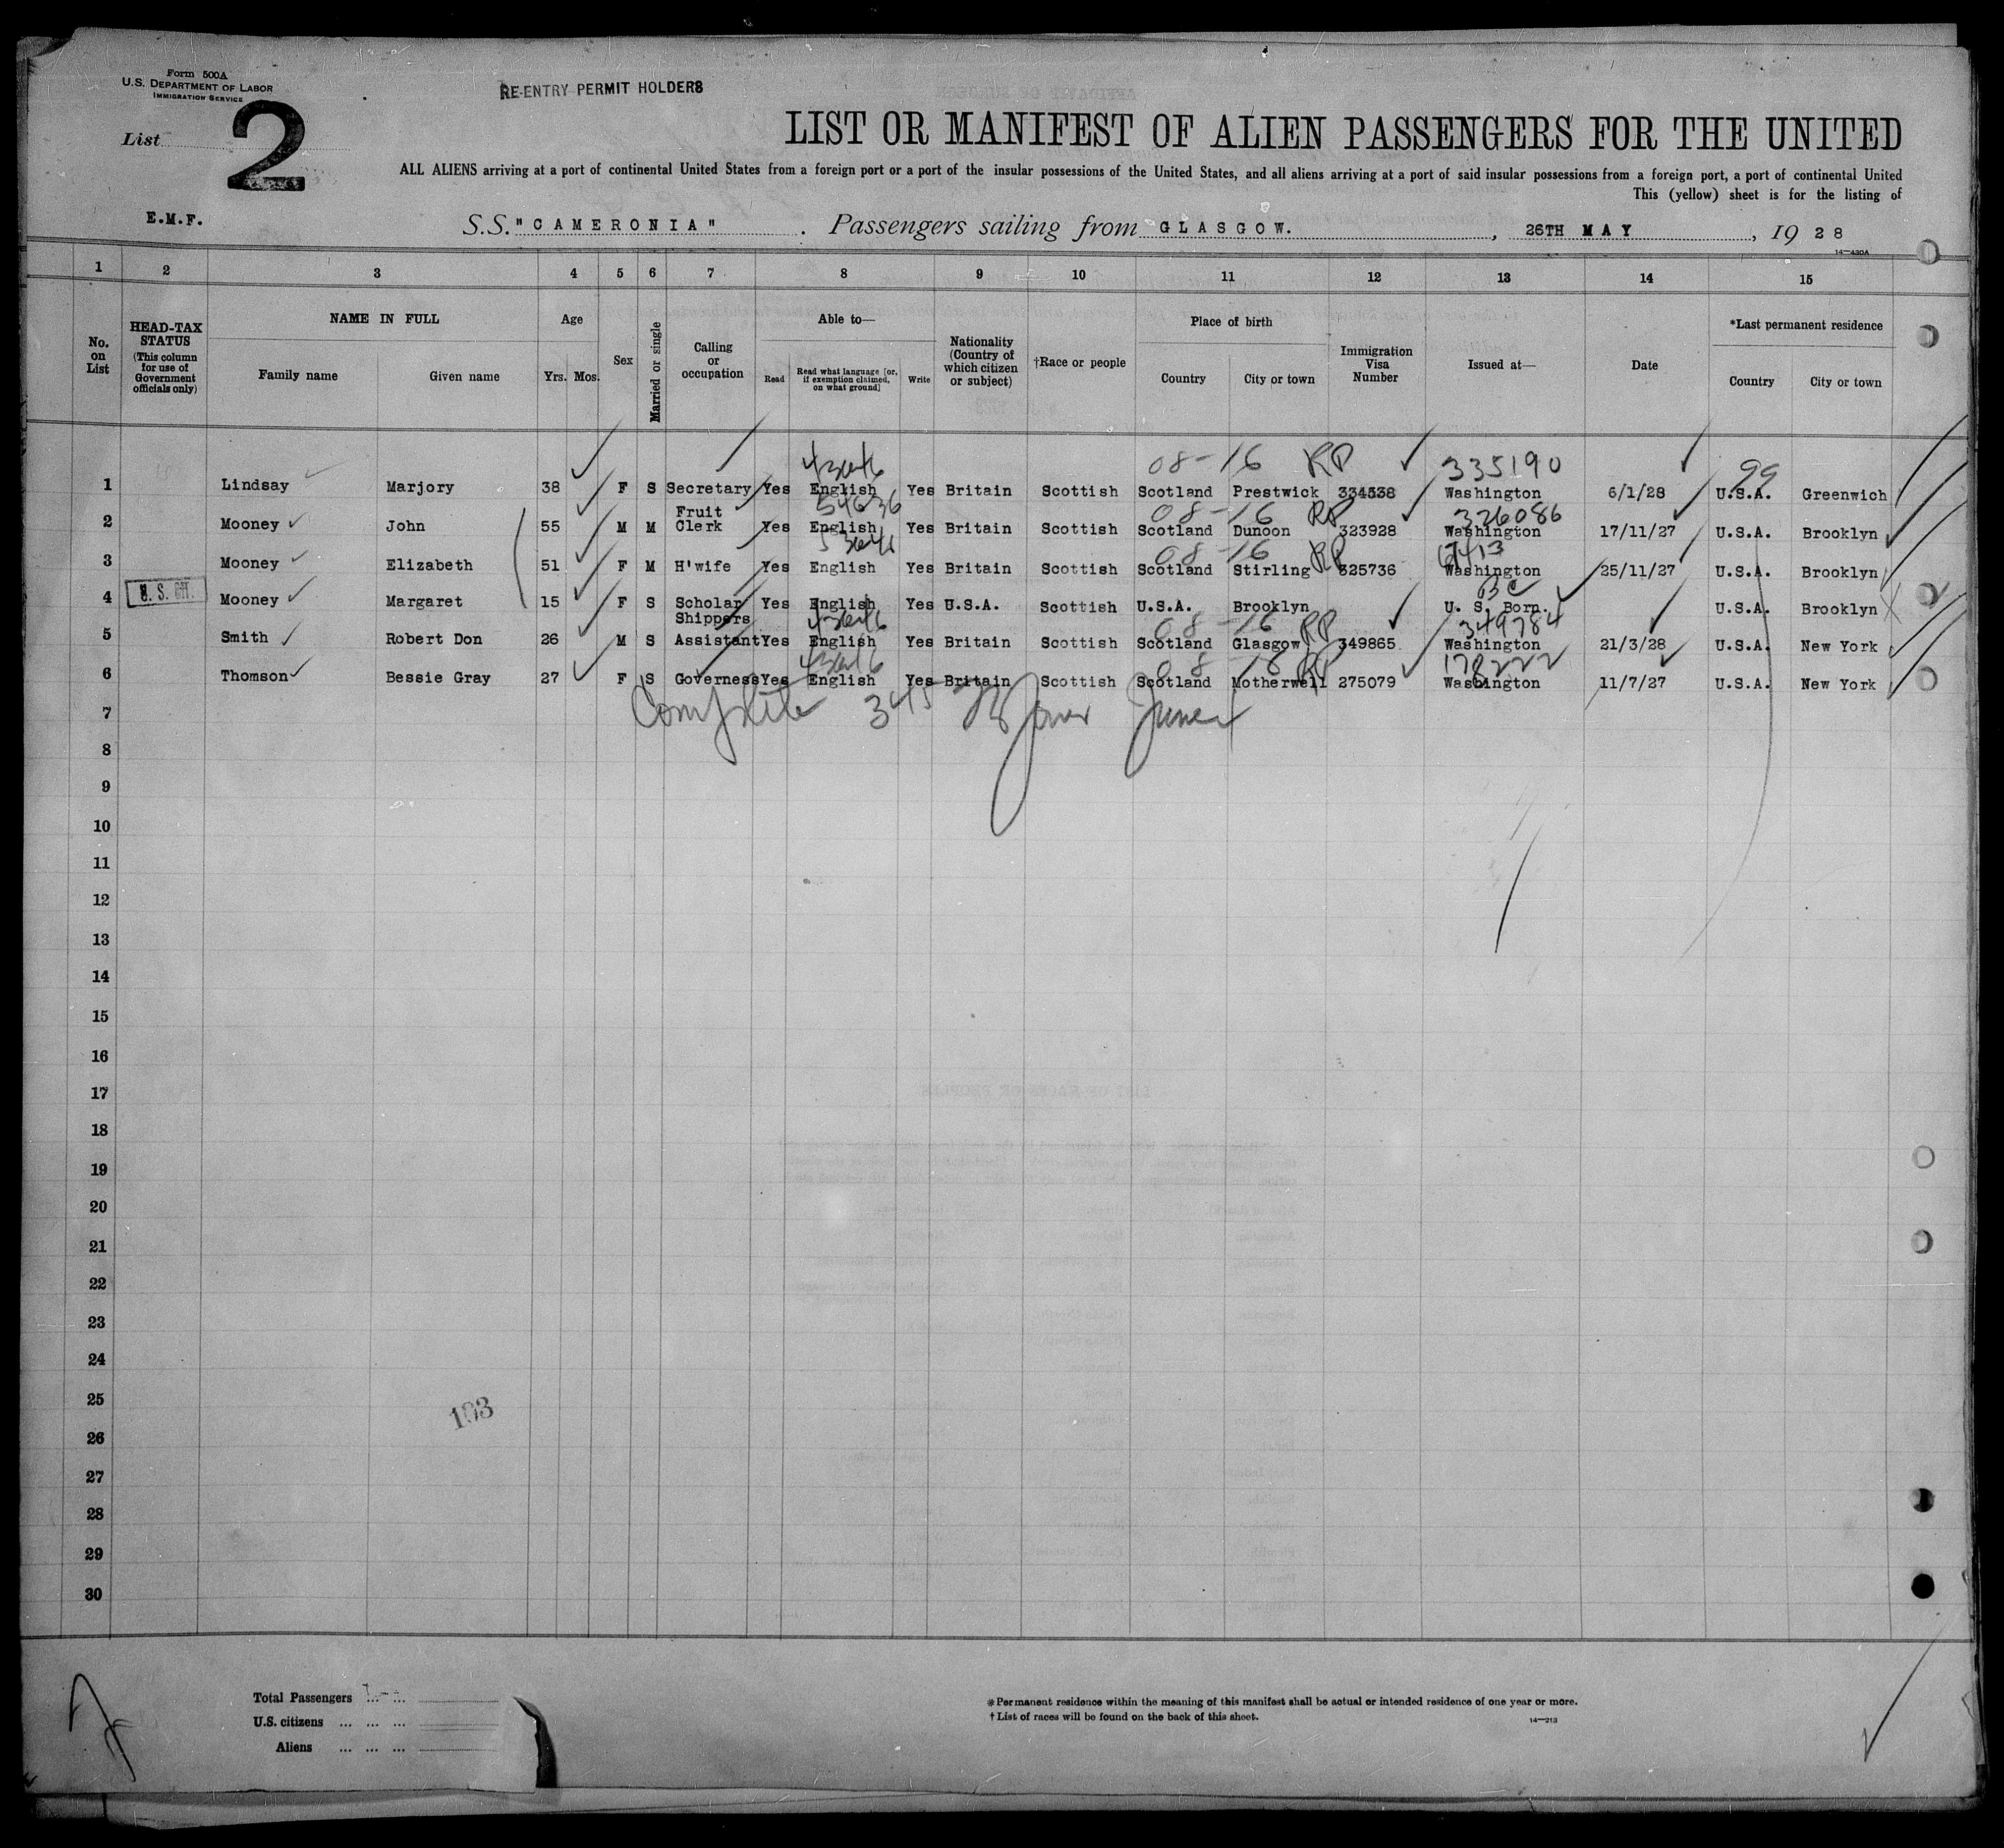 Form 500A
U.S. DEPARTMENT OF LABOR
IMMIGRATION SERVICE
RE-ENTRY PERMIT HOLDERS
List 2
LIST OR MANIFEST OF ALIEN PASSENGERS FOR THE UNITED
ALL ALIENS arriving at a port of continental United States from a foreign port or a port of the insular possessions of the United States, and all aliens arriving at a port of said insular possessions from a foreign port, a port of continental United
This (yellow) sheet is for the listing of
E.M.F.
S.S. "CAMERONIA" . Passengers sailing from GLASGOW. , 26TH MAY , 19 28
14—430A
1 2 3 4 5 6 7 8 9 10 11 12 13 14 15
No. on List
HEAD-TAX STATUS (This column for use of Government officials only)
NAME IN FULL
Family name Given name
Age
Yrs. Mos.
Sex
Married or single
Calling or occupation
Able to—
Read Read what language [or, if exemption claimed, on what ground] Write
Nationality (Country of which citizen or subject)
†Race or people
Place of birth
Country City or town
Immigration Visa Number
Issued at—
Date
*Last permanent residence
Country City or town
08-16 RP 335190 99
1 Lindsay Marjory 38 F S Secretary Yes English Yes Britain Scottish Scotland Prestwick 334538 Washington 6/1/28 U.S.A. Greenwich
08-16 RP 326086
2 Mooney John 55 M M Fruit Clerk Yes English Yes Britain Scottish Scotland Dunoon 323928 Washington 17/11/27 U.S.A. Brooklyn
08-16 RP
3 Mooney Elizabeth 51 F M H'wife Yes English Yes Britain Scottish Scotland Stirling 325736 Washington 25/11/27 U.S.A. Brooklyn
4 U. S. Mooney Margaret 15 F S Scholar Yes English Yes U.S.A. Scottish U.S.A. Brooklyn U. S. Born. U.S.A. Brooklyn
08-16 RP 349784
5 Smith Robert Don 26 M S Shippers Assistant Yes English Yes Britain Scottish Scotland Glasgow 349865 Washington 21/3/28 U.S.A. New York
08-16 RP 178222
6 Thomson Bessie Gray 27 F S Governess Yes English Yes Britain Scottish Scotland Motherwell 275079 Washington 11/7/27 U.S.A. New York
7
8
9
10
11
12
13
14
15
16
17
18
19
20
21
22
23
24
25
103
26
27
28
29
30
Total Passengers ... ...
U.S. citizens ... ... ...
Aliens ... ... ...
*Permanent residence within the meaning of this manifest shall be actual or intended residence of one year or more.
†List of races will be found on the back of this sheet.
14—213